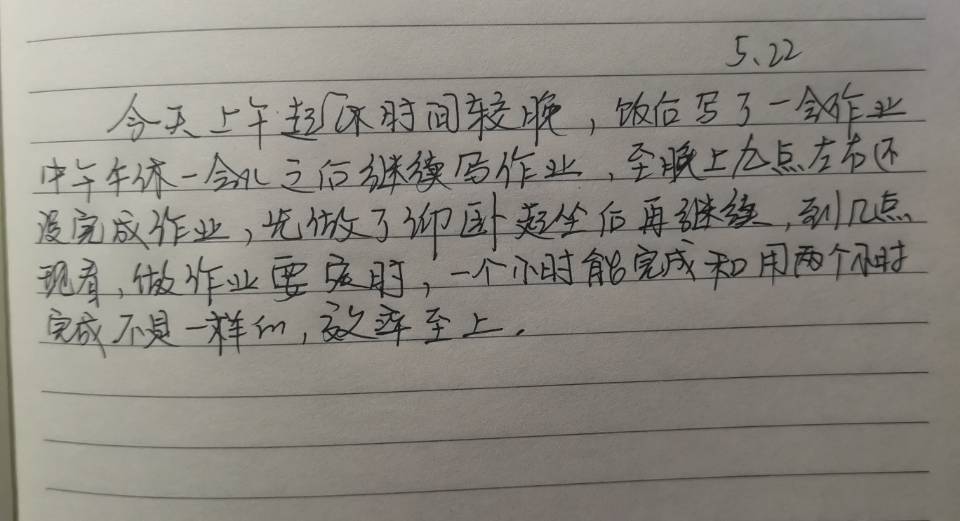 5、22
今天上午起床时间较晚，饭后写了一会作业
中午午休一会儿之后继续写作业，至晚上九点左右还
没完成作业，先做了仰卧起坐后再继续，到几点
现看，做作业要实时，一个小时能完成和用两个小时
完成不是一样的，效率至上。